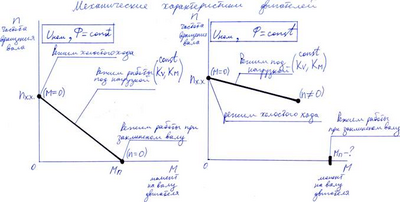 Механические характеристики двигателей
n
частота
вращения
вала
Uном, Ф=const
режим холостого хода
(M=0)
nхх
Режим работы
под нагрузкой (const Kv, Kм)
Режим работы при
заклиненом валу
(n=0)
0
Mп
M
момент
на валу
двигателя
n
частота
вращения
вала
Uном, Ф=const
(M=0)
nхх
Режим под
нагрузкой (const Kv, Kм)
(n≠0)
режим холостого хода
Режим работы
при заклиненом
валу
Mп-?
0
M
момент
на валу
двигателя